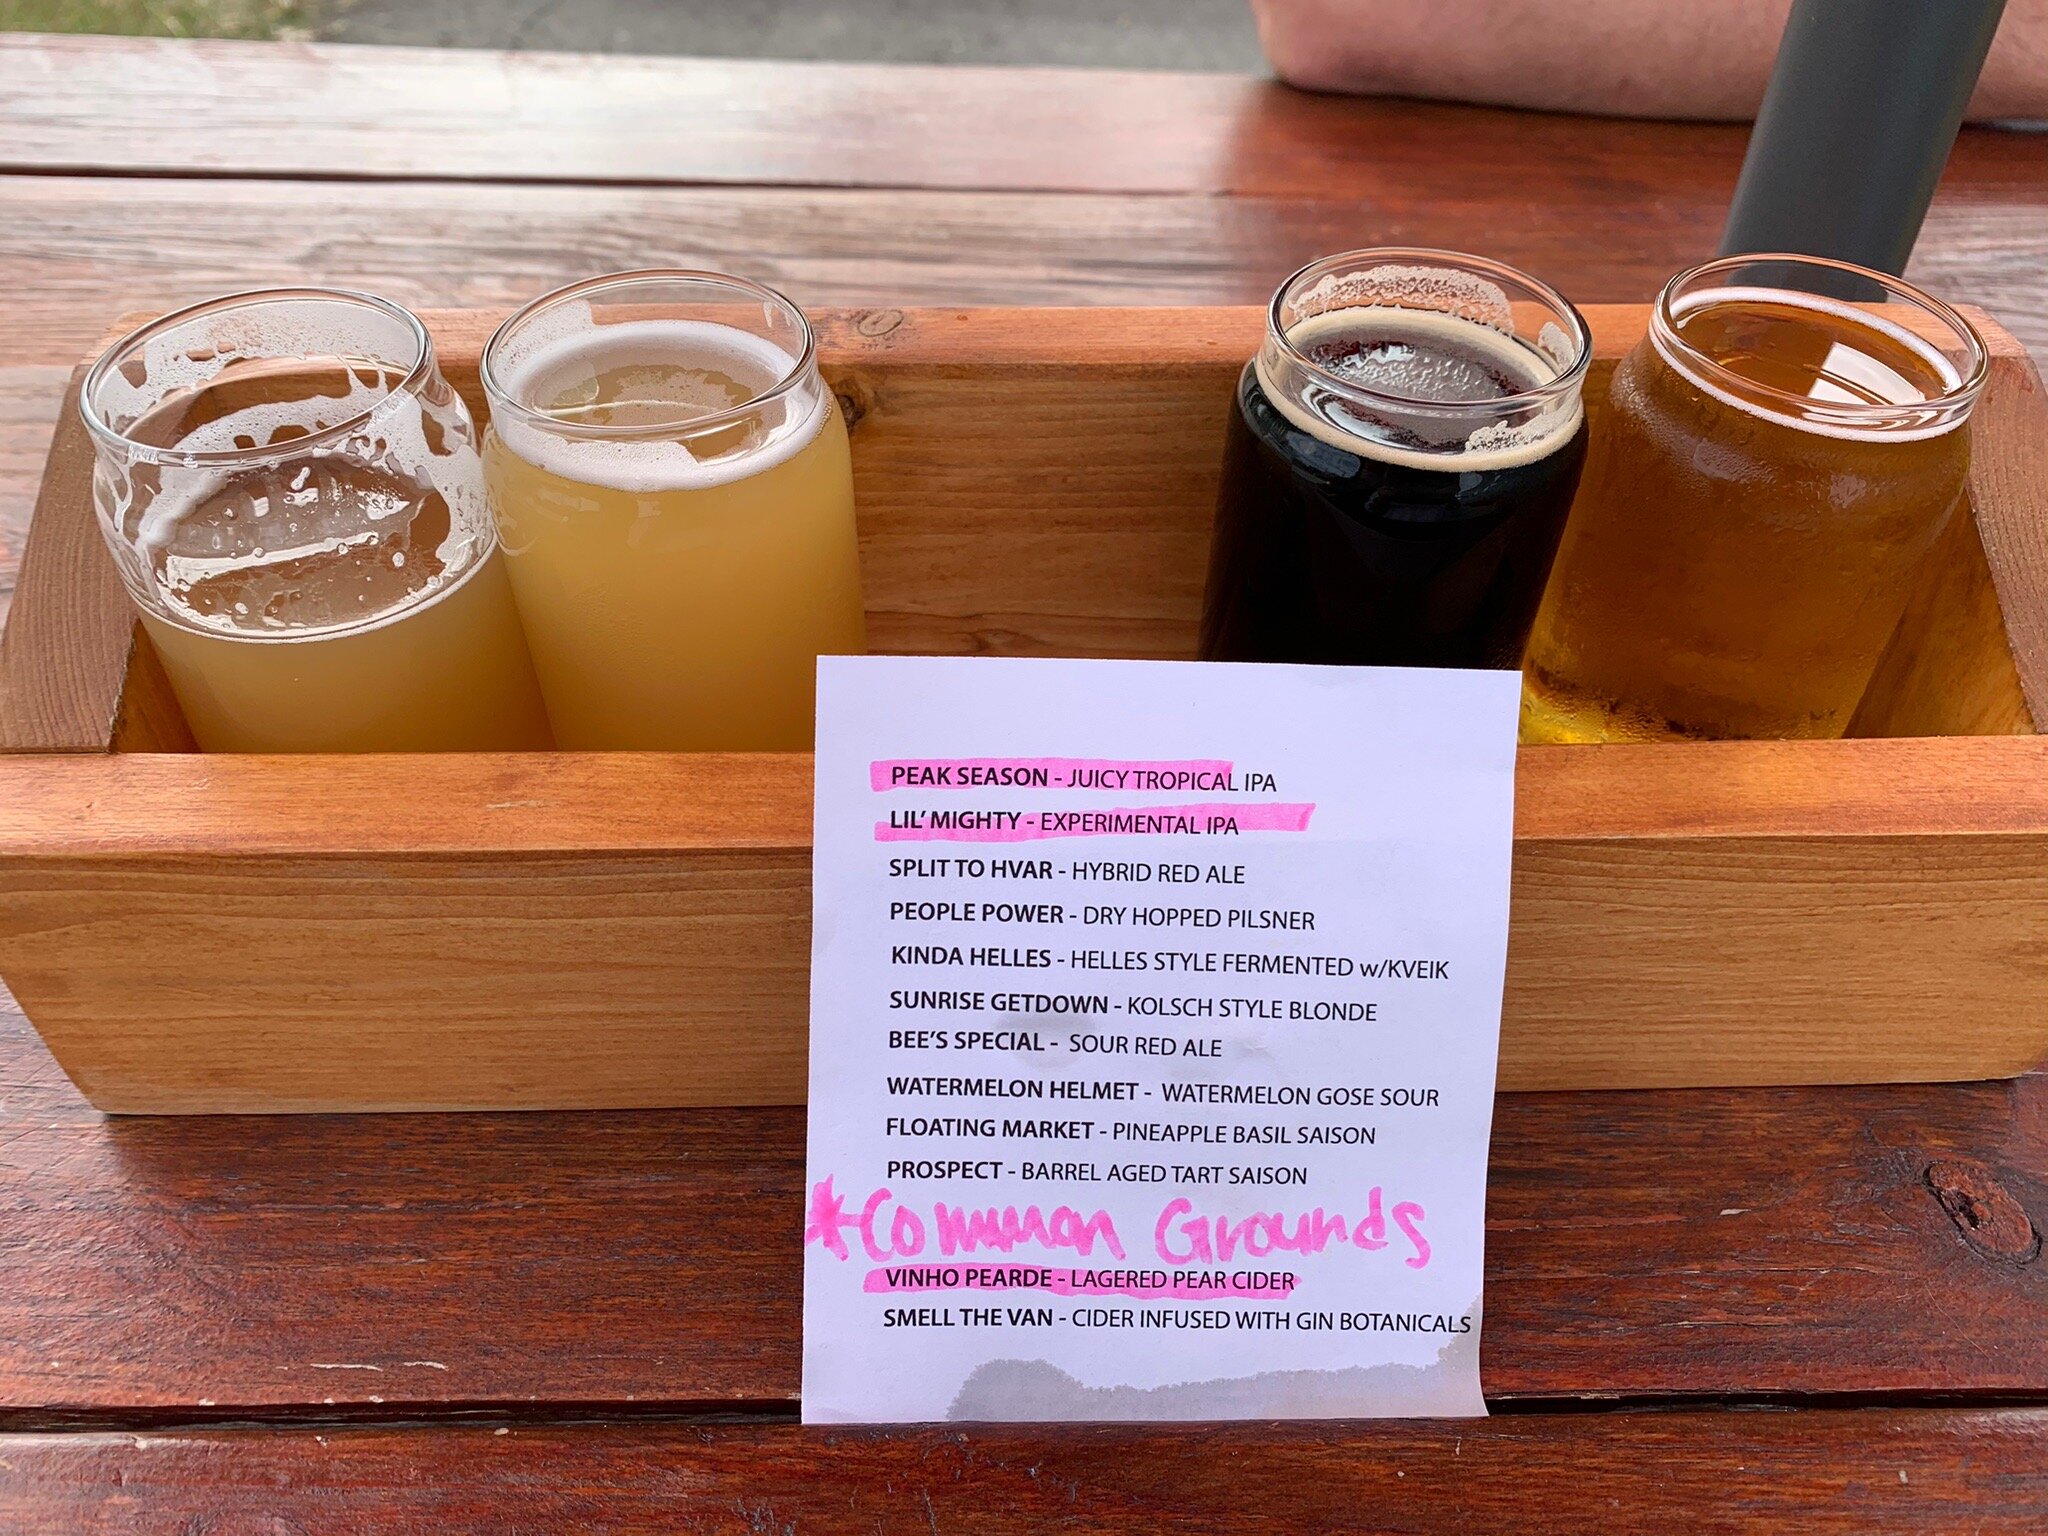 PEAK SEASON - JUICY TROPICAL IPA
LIL' MIGHTY - EXPERIMENTAL IPA
SPLIT TO HVAR - HYBRID RED ALE
PEOPLE POWER - DRY HOPPED PILSNER
KINDA HELLES - HELLES STYLE FERMENTED w/KVEIK
SUNRISE GETDOWN - KOLSCH STYLE BLONDE
BEE'S SPECIAL - SOUR RED ALE
WATERMELON HELMET - WATERMELON GOSE SOUR
FLOATING MARKET - PINEAPPLE BASIL SAISON
PROSPECT - BARREL AGED TART SAISON
*Common Grounds
VINHO PEARDE - LAGERED PEAR CIDER
SMELL THE VAN - CIDER INFUSED WITH GIN BOTANICALS